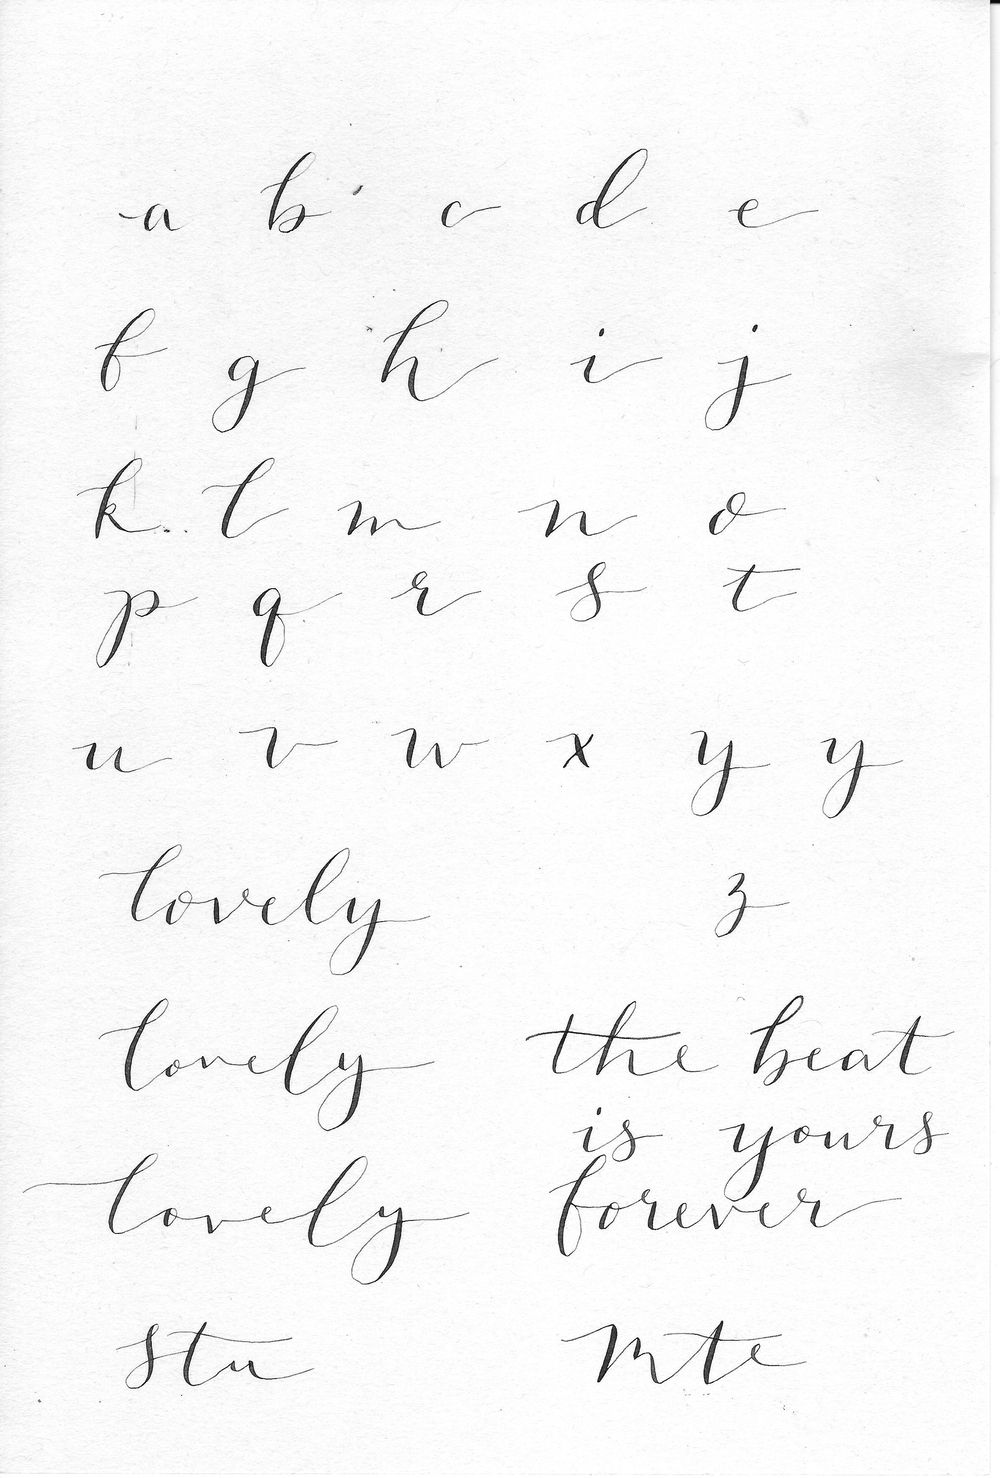 a b c d e
f g h i j
k l m n o
p q r s t
u v w x y y
lovely z
lovely the beat
is yours
lovely forever
stu mte